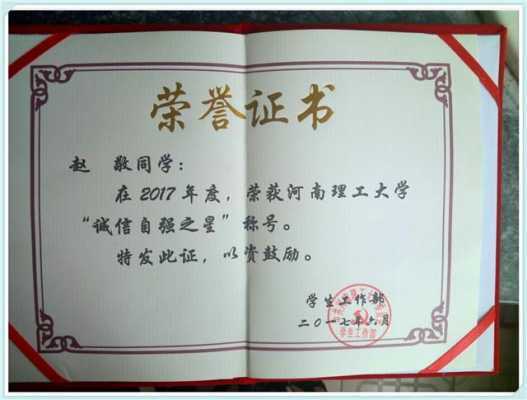 荣誉证书
赵 敬同学：
在2017年度，荣获河南理工大学
“诚信自强之星”称号。
特发此证，以资鼓励。
学生工作部
二〇一七年六月
学生工作部